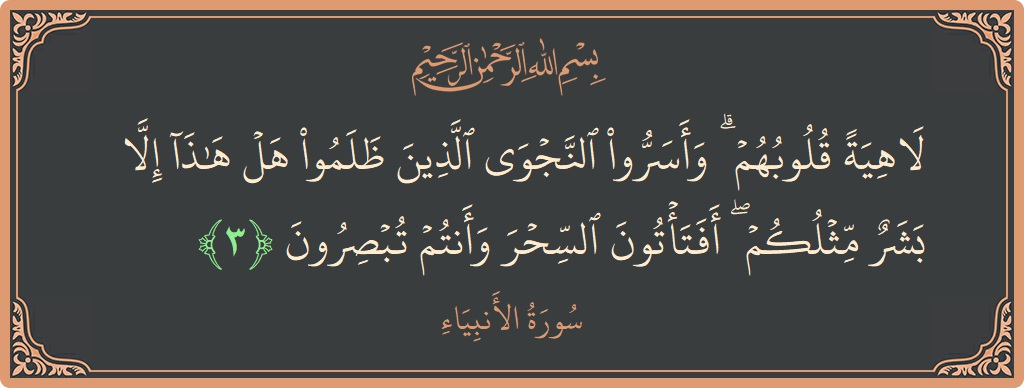 بِسْمِ اللَّهِ الرَّحْمَٰنِ الرَّحِيمِ
لَاهِيَةً قُلُوبُهُمْ ۗ وَأَسَرُّوا۟ ٱلنَّجْوَى ٱلَّذِينَ ظَلَمُوا۟ هَلْ هَـٰذَآ إِلَّا
بَشَرٌ مِّثْلُكُمْ ۖ أَفَتَأْتُونَ ٱلسِّحْرَ وَأَنتُمْ تُبْصِرُونَ ﴿٣﴾
سُورَةُ الأَنبِيَاءِ